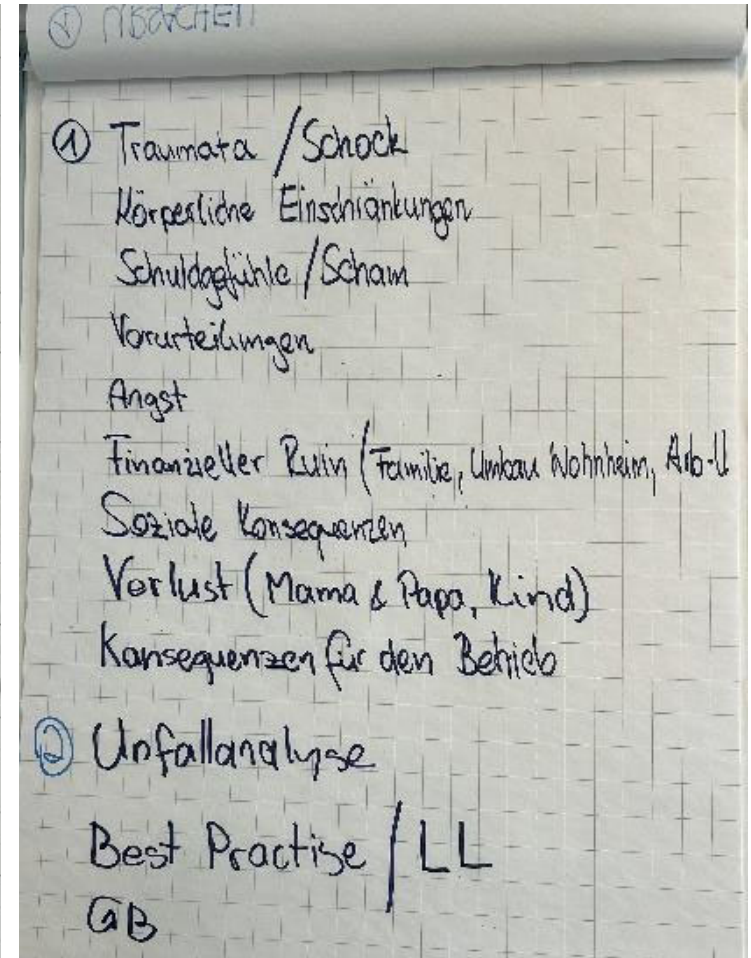 ①
① Traumata / Schock
Körperliche Einschränkungen
Schuldgefühle / Scham
Vorurteilungen
Angst
Finanzieller Ruin (Familie, Umbau Wohnheim, Arb-U
Soziale Konsequenzen
Verlust (Mama & Papa, Kind)
Konsequenzen für den Betrieb
② Unfallanalyse
Best Practise / LL
GB